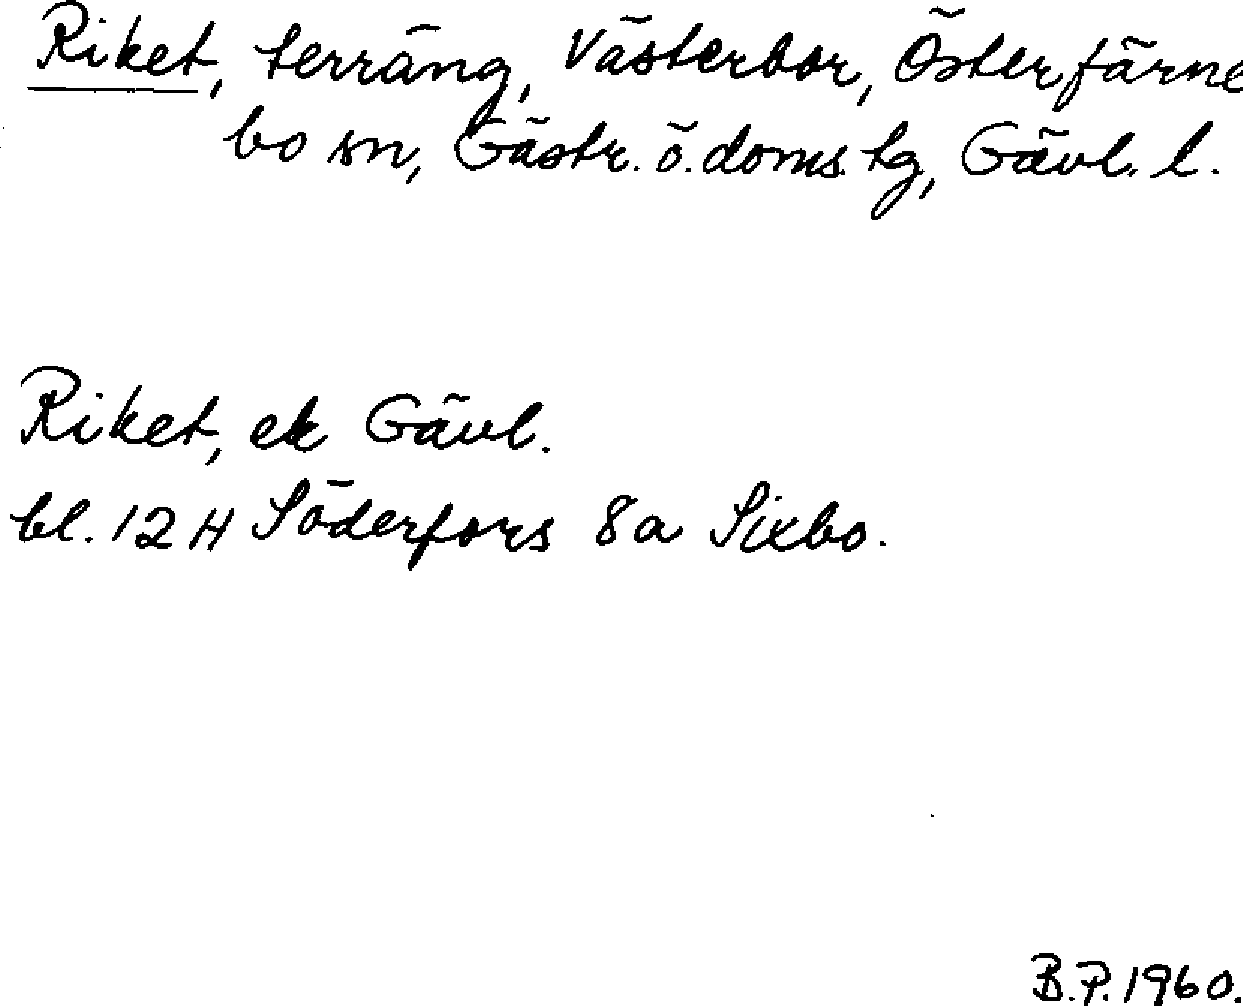 Riket, terräng, Västerbor, Österfärne
bo sn, Gästr. ö. doms. tg, Gävl. l.
Riket, ek Gävl.
bl. 12 H Söderfors 8a Sixbo.
B.P. 1960.